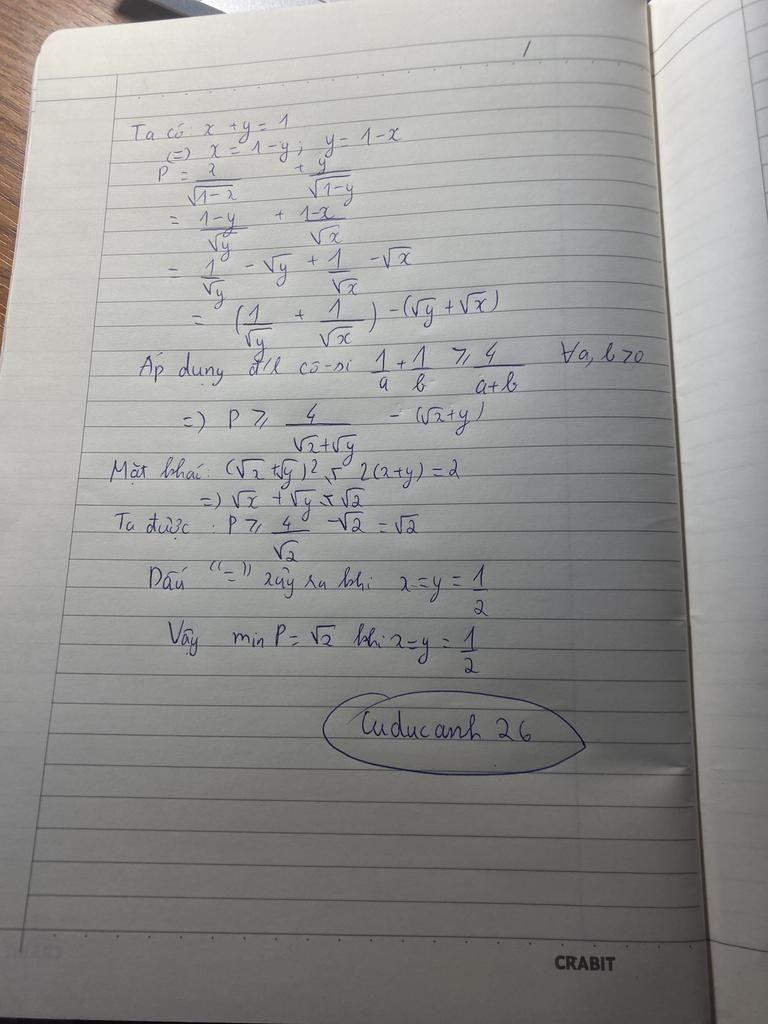 Ta có: x + y = 1
(=) x = 1-y; y = 1-x
P = x/√(1-x) + y/√(1-y)
= (1-y)/√y + (1-x)/√x
= 1/√y - √y + 1/√x - √x
= (1/√y + 1/√x) - (√y + √x)
Áp dụng đ/l cô-si 1/a + 1/b ≥ 4/(a+b) ∀a, b > 0
=) P ≥ 4/(√x+√y) - (√x+y)
Mặt khác: (√x + √y)² ≤ 2(x+y) = 2
=) √x + √y ≤ √2
Ta được: P ≥ 4/√2 - √2 = √2
Dấu "=" xảy ra khi x = y = 1/2
Vậy min P = √2 khi x = y = 1/2
Cuducanh 26
CRABIT